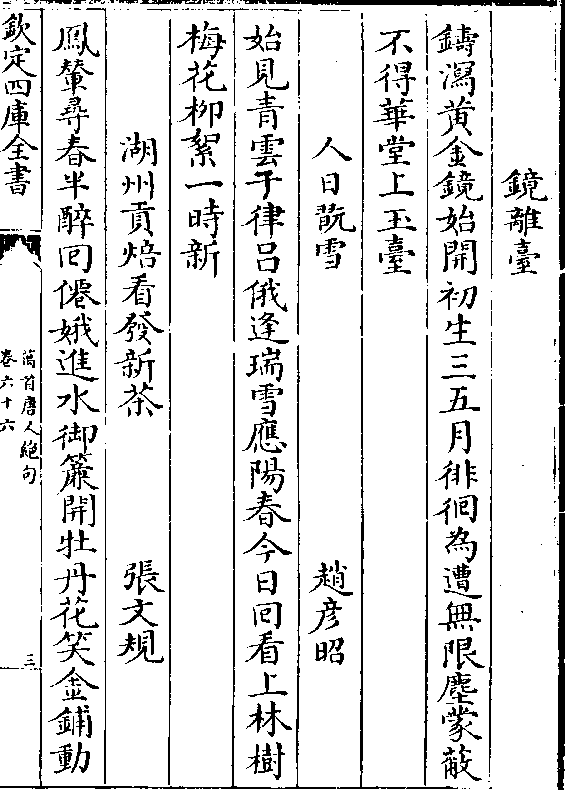 鏡離臺
鑄瀉黃金鏡始開初生三五月徘徊為遭無限塵蒙蔽
不得華堂上玉臺
人日翫雪　趙彥昭
始見青雲干律呂俄逢瑞雪應陽春今日回看上林樹
梅花柳絮一時新
湖州貢焙看發新茶　張文規
鳳輦尋春半醉回僊娥進水御簾開牡丹花笑金鋪動
欽定四庫全書
萬首唐人絶句
卷六十六
三